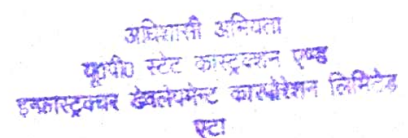 अधिशासी अभियन्ता
यू०पी० स्टेट कास्ट्रक्शन एण्ड
इन्फ्रास्ट्रक्चर डेवलेपमेन्ट कारपोरेशन लिमिटेड
एटा